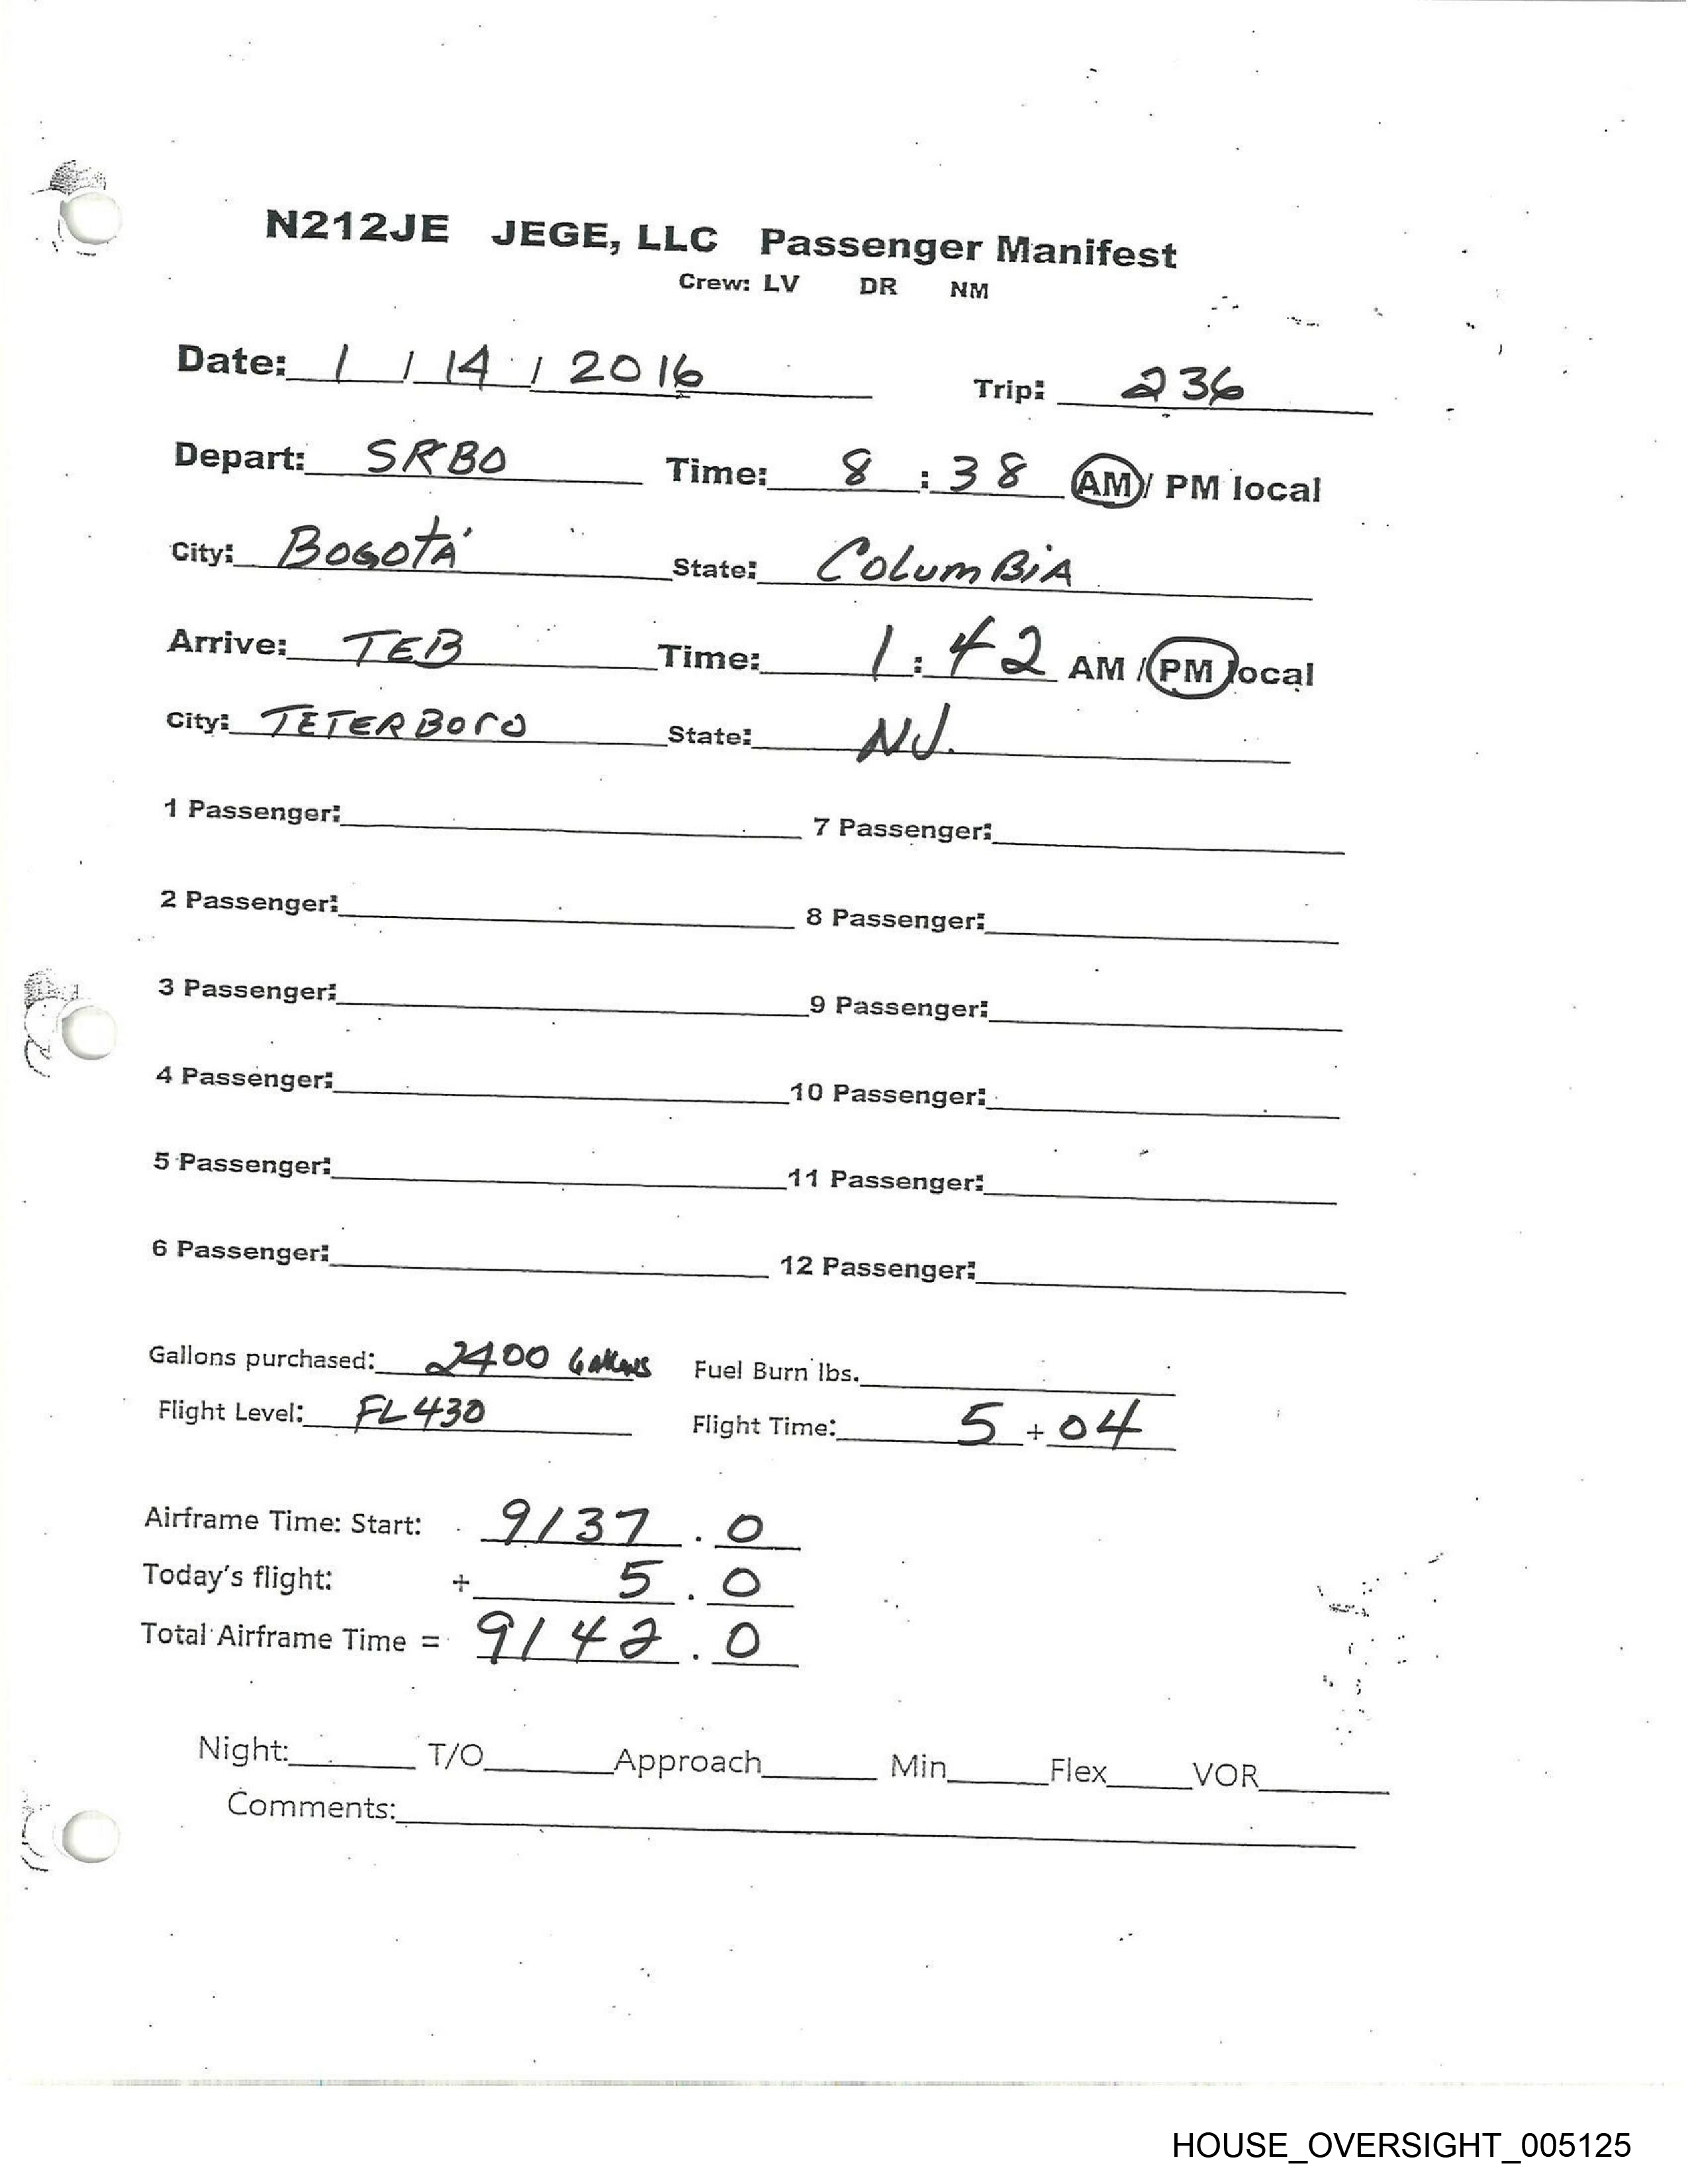 N212JE JEGE, LLC Passenger Manifest
Crew: LV DR NM
Date: 1 / 14 / 2016 Trip: 236
Depart: SKBO Time: 8 : 38 AM / PM local
City: BOGOTÁ State: COLUMBIA
Arrive: TEB Time: 1 : 42 AM / PM local
City: TETERBORO State: NJ.
1 Passenger: 7 Passenger:
2 Passenger: 8 Passenger:
3 Passenger: 9 Passenger:
4 Passenger: 10 Passenger:
5 Passenger: 11 Passenger:
6 Passenger: 12 Passenger:
Gallons purchased: 2400 Gallons Fuel Burn lbs.
Flight Level: FL430 Flight Time: 5 + 04
Airframe Time: Start: 9137 . 0
Today's flight: + 5 . 0
Total Airframe Time = 9142 . 0
Night: T/O Approach Min Flex VOR
Comments:
HOUSE_OVERSIGHT_005125